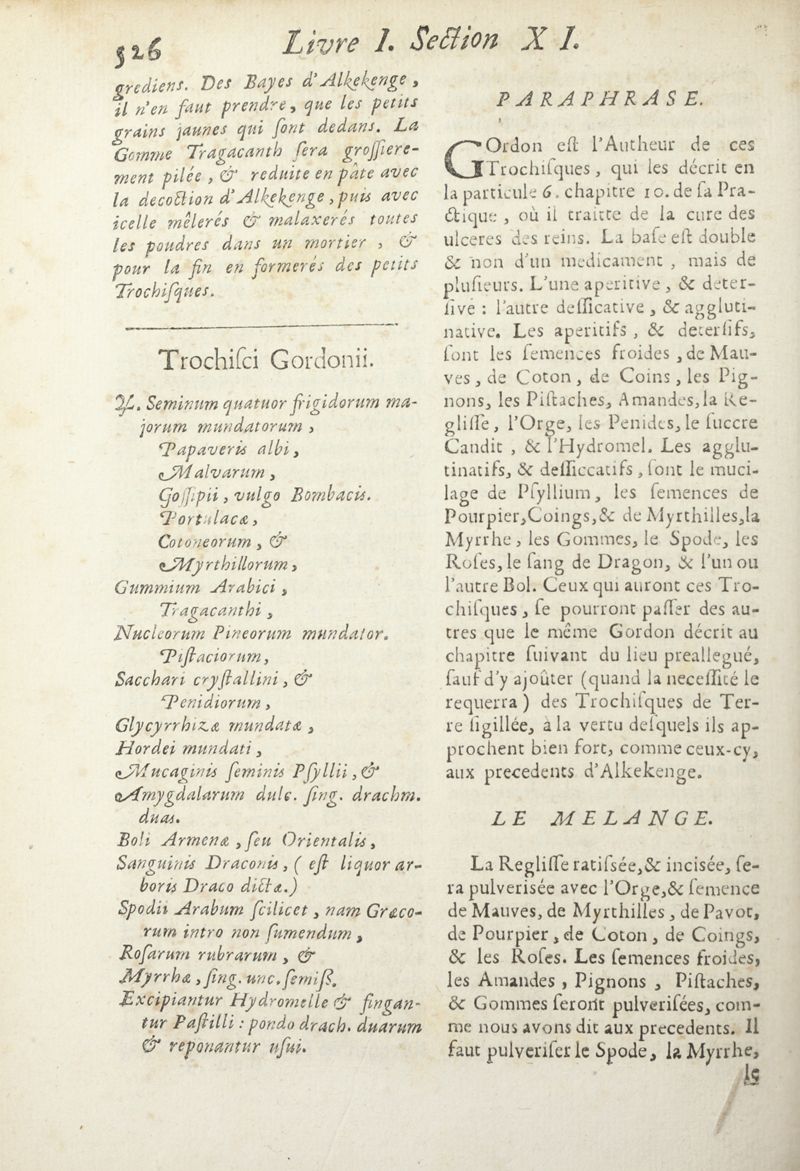 526
Livre I. Section XI.
grediens. Des Bayes d'Alkekenge,
il n'en faut prendre, que les petits
grains jaunes qui ſont dedans. La
Gomme Tragacanth ſera groſſiere-
ment pilée, & reduite en pâte avec
la decoction d'Alkekenge, puis avec
icelle mêlerés & malaxerés toutes
les poudres dans un mortier, &
pour la fin en formerés des petits
Trochiſques.
Trochiſci Gordonii.
♃. Seminum quatuor frigidorum ma-
jorum mundatorum,
Papaveris albi,
Malvarum,
Goſſipii, vulgo Bombacis.
Portulacæ,
Cotoneorum, &
Myrthillorum,
Gummium Arabici,
Tragacanthi,
Nucleorum Pineorum mundator.
Piſtaciorum,
Sacchari cryſtallini, &
Penidiorum,
Glycyrrhizæ mundatæ,
Hordei mundati,
Mucaginis ſeminis Pſyllii, &
Amygdalarum dulc. ſing. drachm.
duas.
Boli Armenæ, ſeu Orientalis,
Sanguinis Draconis, ( eſt liquor ar-
boris Draco dictæ.)
Spodii Arabum ſcilicet, nam Græco-
rum intro non ſumendum,
Roſarum rubrarum, &
Myrrhæ, ſing. unc. ſemiß.
Excipiantur Hydromelle & fingan-
tur Paſtilli : pondo drach. duarum
& reponantur uſui.
PARAPHRASE.
GOrdon eſt l'Autheur de ces
Trochiſques, qui les décrit en
la particule 6. chapitre 10. de ſa Pra-
ctique, où il traitte de la cure des
ulceres des reins. La baſe eſt double
& non d'un medicament, mais de
pluſieurs. L'une aperitive, & deter-
ſive : l'autre deſſicative, & aggluti-
native. Les aperitifs, & deterſifs,
ſont les ſemences froides, de Mau-
ves, de Coton, de Coins, les Pig-
nons, les Piſtaches, Amandes, la Re-
gliſſe, l'Orge, les Penides, le ſuccre
Candit, & l'Hydromel. Les agglu-
tinatifs, & deſſiccatifs, ſont le muci-
lage de Pſyllium, les ſemences de
Pourpier, Coings, & de Myrthilles, la
Myrrhe, les Gommes, le Spode, les
Roſes, le ſang de Dragon, & l'un ou
l'autre Bol. Ceux qui auront ces Tro-
chiſques, ſe pourront paſſer des au-
tres que le même Gordon décrit au
chapitre ſuivant du lieu preallegué,
ſauf d'y ajoûter (quand la neceſſité le
requerra) des Trochiſques de Ter-
re ſigillée, à la vertu deſquels ils ap-
prochent bien fort, comme ceux-cy,
aux precedents d'Alkekenge.
LE MELANGE.
La Regliſſe ratiſsée, & incisée, ſe-
ra pulverisée avec l'Orge, & ſemence
de Mauves, de Myrthilles, de Pavot,
de Pourpier, de Coton, de Coings,
& les Roſes. Les ſemences froides,
les Amandes, Pignons, Piſtaches,
& Gommes ſeront pulveriſées, com-
me nous avons dit aux precedents. Il
faut pulveriſer le Spode, la Myrrhe,
le